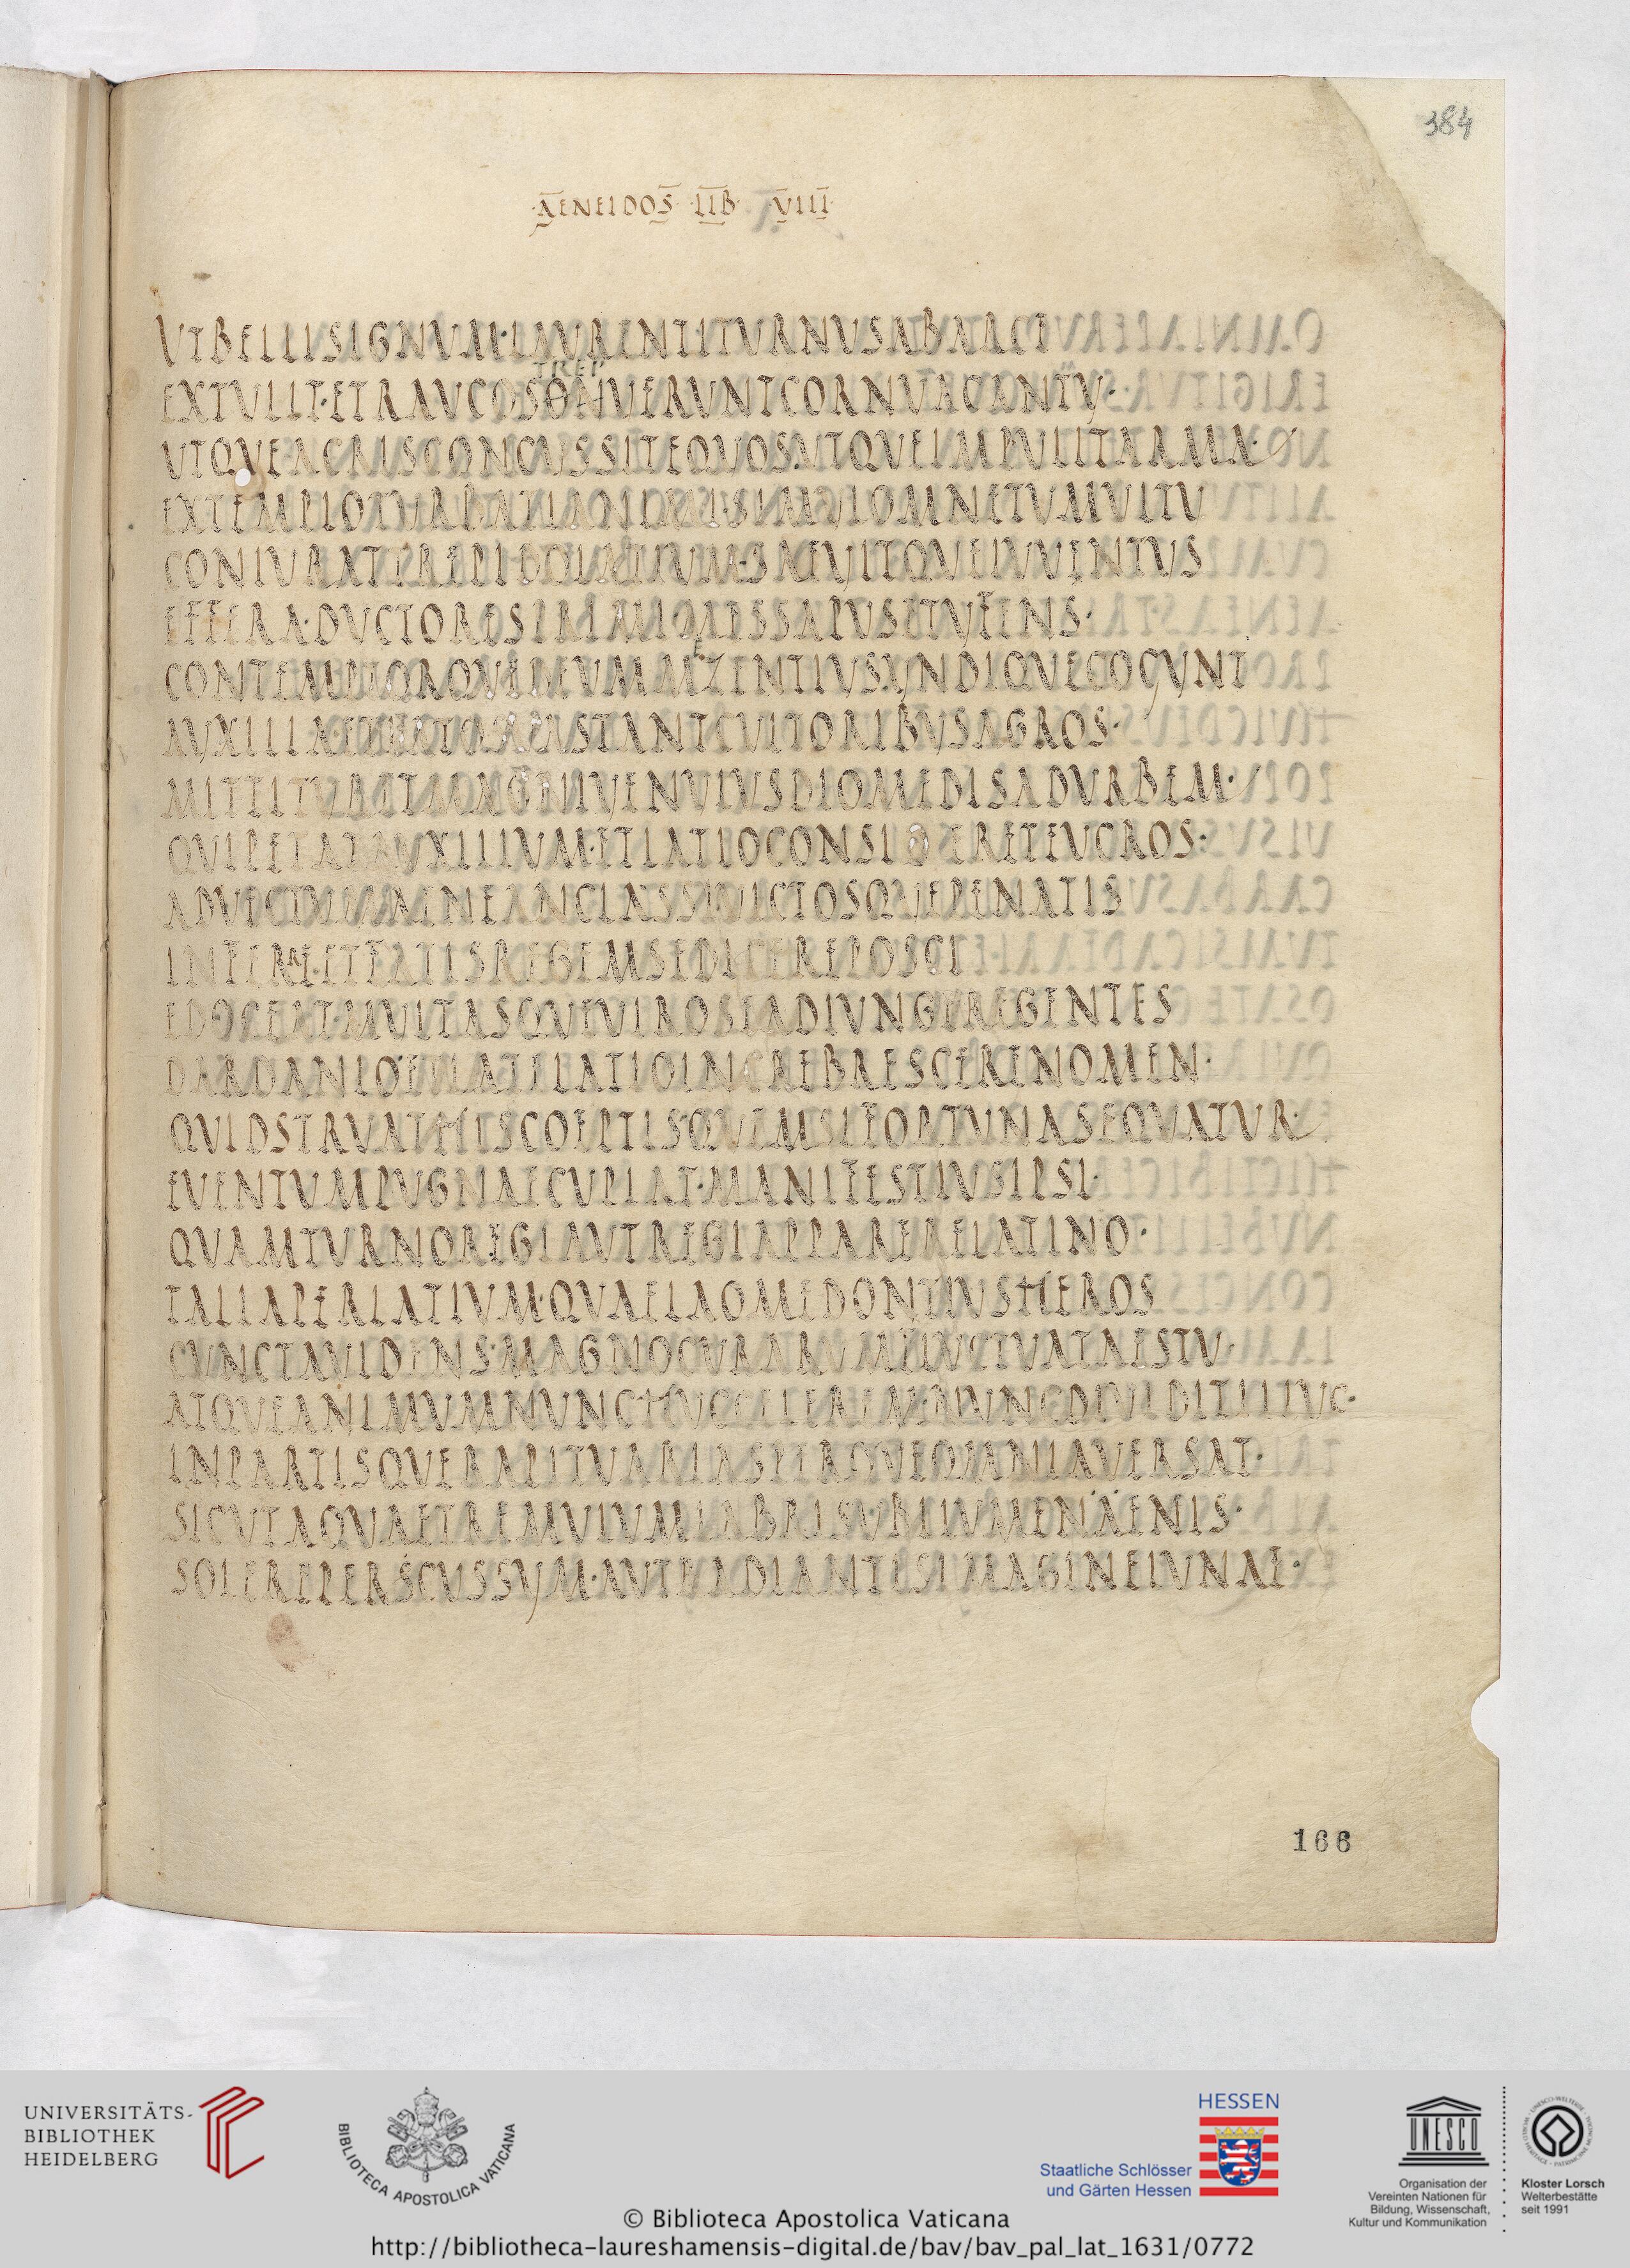 384
AENEIDOS LIB VIII
VTBELLISIGNVM·LAVRENTITVRNVSABARCE
TREP
EXTVLIT·ETRAVCOSONUERVNTCORNVACANTV·
VTQVEACRISCONCVSSITEQVOS·VTQVEIMPVLITARMA·
EXTEMPLOTVRBATIANIMI·SIMVLOMNETVMVLTV
CONIVRATTREPIDOLATIVM·SAEVITQVEIVVENTVS
EFFERA·DVCTORESPRIMIMESSAPVSETVFENS·
E
CONTEMPTORQVEDEVMMZENTIVS·VNDIQVECOGVNT
AVXILIA·ETLATOSVASTANTCVLTORIBVSAGROS·
MITTITVRETMAGNIVENVLVSDIOMEDISADVRBEM·
QVIPETATAVXILIVM·ETLATIOCONSIDERETEVCROS·
ADVECTVMAENEANCLASSIVICTOSQVEPENATIS
INFERRE·ETFATISREGEMSEDICEREPOSCI
EDOCEAT·MVLTASQVEVIROSEADIVNGEREGENTES
DARDANIOETLATELATIOINCREBRESCERENOMEN·
QVIDSTRVATHISCOEPTIS·QVEMSIFORTVNASEQVATVR·
EVENTVMPVGNAECVPIAT·MANIFESTIVSIPSI·
QVAMTVRNOREGIAVTREGIAPPARERELATINO·
TALIAPERLATIVM·QVAELAOMEDONTIVSHEROS
CVNCTAVIDENS·MAGNOCVRARVMFLVCTVATAESTV·
ATQVEANIMVMNVNCHVCCELEREM·NVNCDIVIDITILLVC·
INPARTISQVERAPITVARIASPERQVEOMNIAVERSAT·
SICVTAQVAETREMVLVMLABRISVBILVMENAENIS·
SOLEREPERSCVSSVM·AVTRADIANTISIMAGINELVNAE·
166
UNIVERSITÄTS-
BIBLIOTHEK
HEIDELBERG
BIBLIOTECA APOSTOLICA VATICANA
HESSEN
Staatliche Schlösser
und Gärten Hessen
UNESCO
Organisation der
Vereinten Nationen für
Bildung, Wissenschaft,
Kultur und Kommunikation
Kloster Lorsch
Welterbestätte
seit 1991
© Biblioteca Apostolica Vaticana
http://bibliotheca-laureshamensis-digital.de/bav/bav_pal_lat_1631/0772